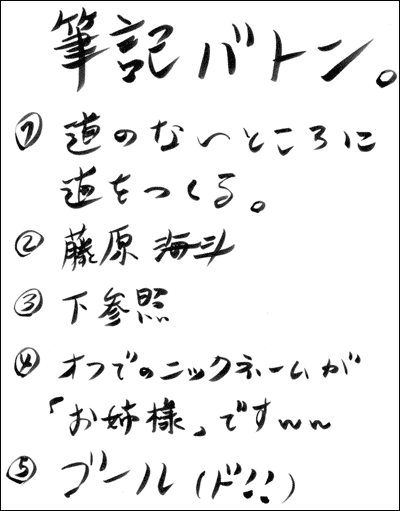 筆記バトン。
① 道のないところに
道をつくる。
② 藤原 海斗
③ 下参照
④ オフでのニックネームが
「お姉様」ですww
⑤ ゴール(ド!!)